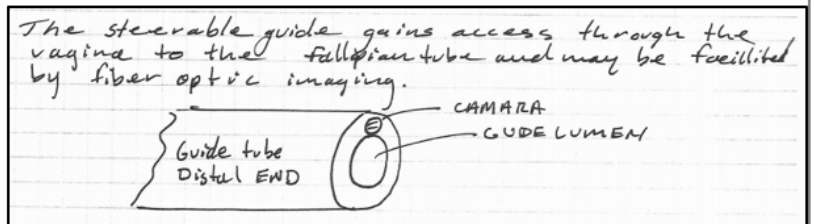 The steerable guide gains access through the
vagina to the fallpian tube and may be facillited
by fiber optic imaging.
CAMARA
GUDE LUMEN
Guide tube
Distal END